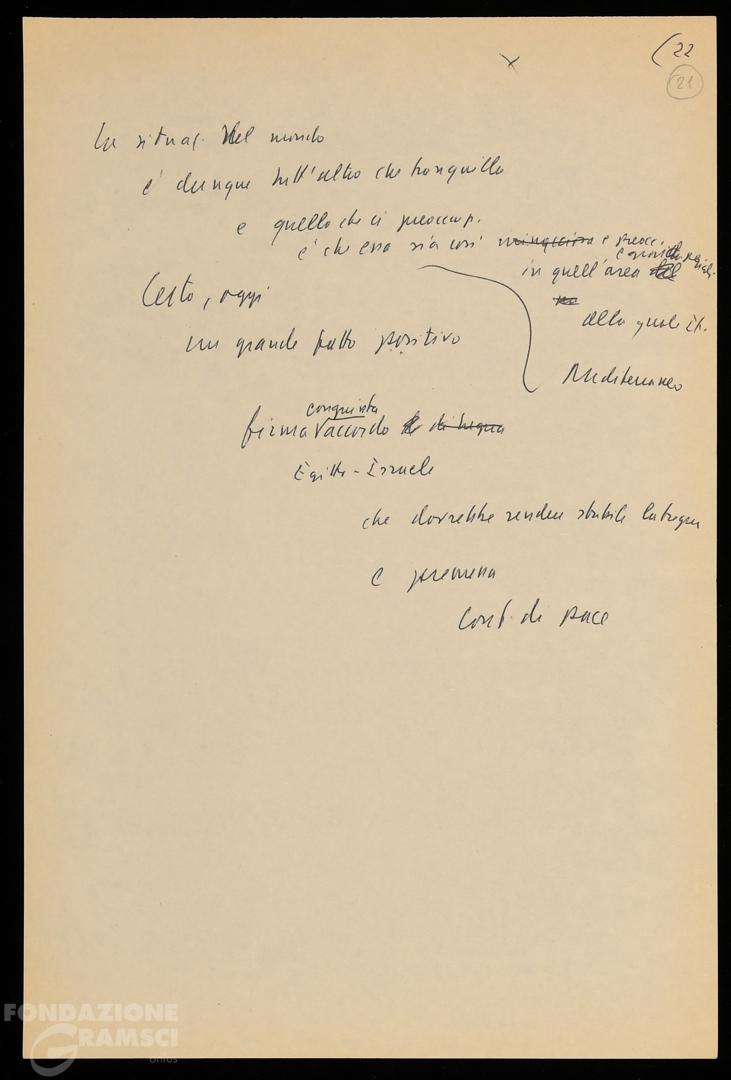 (22
21
La situaz. del mondo
è dunque tutt'altro che tranquilla
e quello che ci preoccup.
è che essa sia così minacciosa e preocc.
in quell'area del
alla quale
Mediterraneo
Certo, oggi
un grande fatto positivo
conquista
firma accordo di tregua
Egitto - Israele
che dovrebbe rendere stabile la tregua
e premessa
Conf. di pace
FONDAZIONE
GRAMSCI
onlus